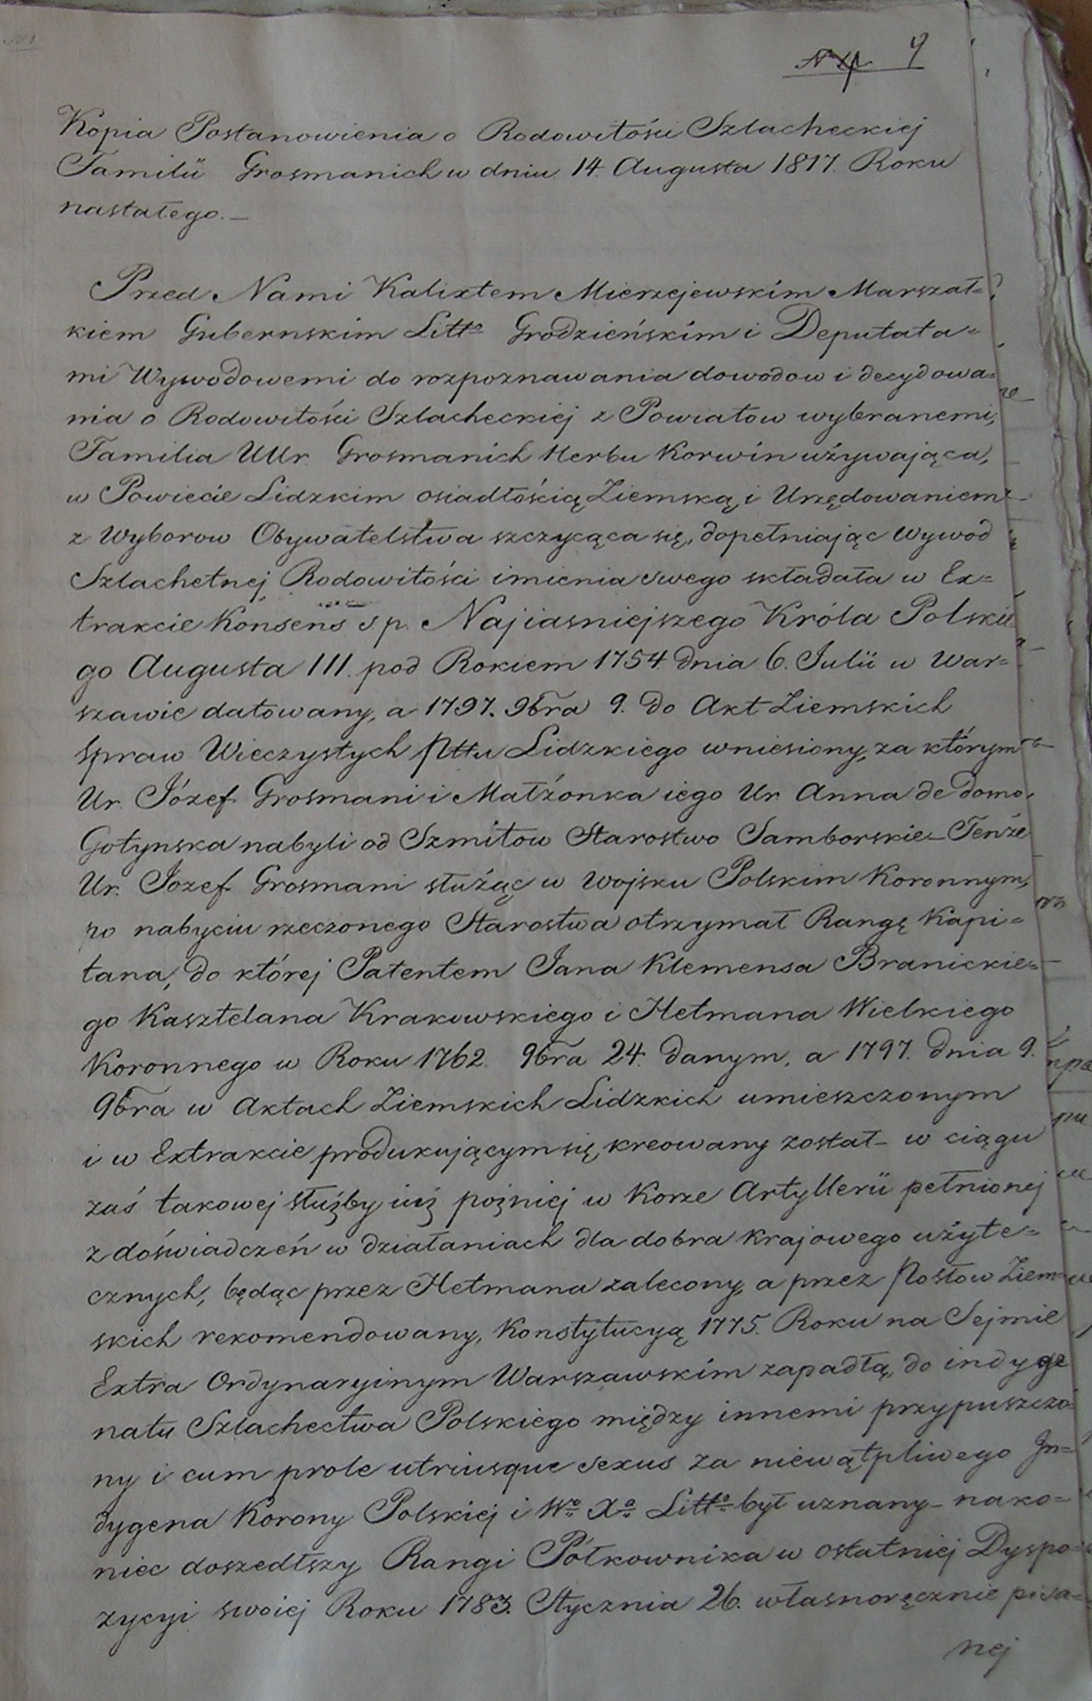 9
Kopia Postanowienia o Rodowitości Szlacheckiej
Familii Grosmanich w dniu 14 Augusta 1817. Roku
nastałego.—
Przed Nami Kalixtem Mierzejewskim Marszał=
kiem Gubernskim Litto Grodzieńskim i Deputata=
mi Wywodowemi do rozpoznawania dowodow i decydowa=
nia o Rodowitości Szlacheckiej z Powiatow wybranemi,
Familia UUr. Grosmanich Herbu Korwin używająca,
w Powiecie Lidzkim osiadłością Ziemską i Urzędowaniem
z Wyborow Obywatelstwa szczycąca się, dopełniając Wywod
Szlachetnej Rodowitości imienia swego składała w Ex=
trakcie Konsens sp. Najiasniejszego Króla Polskie
go Augusta III. pod Rokiem 1754 dnia 6. Julii w War=
szawie datowany, a 1797. 9bra 9. do Akt Ziemskich
Spraw Wieczystych Pttu Lidzkiego wniesiony, za którym
Ur. Józef Grosmani i Małżonka iego Ur. Anna de domo
Gołynska nabyli od Szmitow Starostwo Samborskie – Tenże
Ur. Jozef Grosmani służąc w Wojsku Polskim Koronnym,
po nabyciu rzeczonego Starostwa otrzymał Rangę Kapi=
tana, do której Patentem Jana Klemensa Branickie=
go Kasztelana Krakowskiego i Hetmana Wielkiego
Koronnego w Roku 1762. 9bra 24. danym, a 1797. dnia 9.
9bra w Aktach Ziemskich Lidzkich umieszczonym
i w Extrakcie produkującym się, kreowany został – w ciągu
zaś takowej służby iuż poźniej w Korze Artyllerii pełnionej
z doświadczeń w działaniach dla dobra krajowego użyte=
cznych, będąc przez Hetmana zalecony, a przez Posłow Ziem
skich rekomendowany, Konstytucyą 1775. Roku na Sejmie
Extra Ordynaryinym Warszawskim zapadłą, do indyge
natu Szlachectwa Polskiego między innemi przypuszczo=
ny i cum prole utriusque sexus za niewątpliwego In=
dygena Korony Polskiej i Wo Xa Litto był uznany – nako=
niec doszedłszy Rangi Połkownika w ostatniej Dyspo=
zycyi swoiej Roku 1783. Stycznia 26. własnoręcznie pisa=
nej